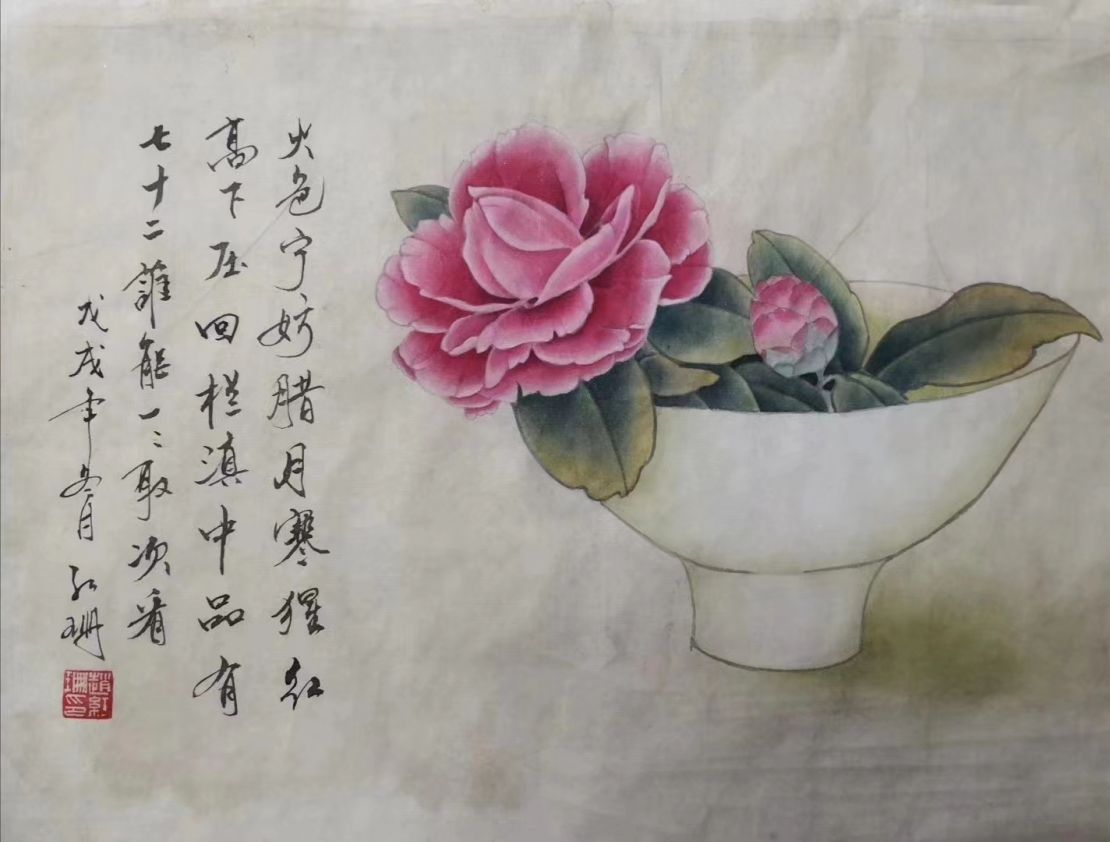 火色宁妨腊月寒猩红
高下压回栏滇中品有
七十二谁能一二取次看
戊戌年冬月 红珊
赵红珊印